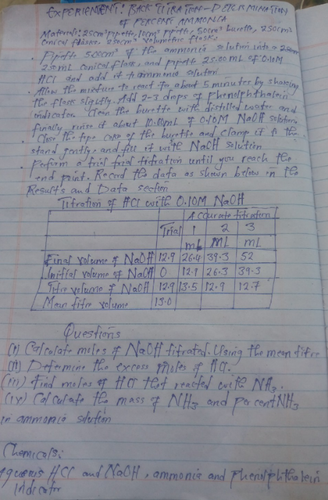 EXPERIMENT: BACK TITRATION - DETERMINATION
OF PERCENT AMMONIA
Material: 20cm³ pipette, 10cm³ pipette, 50cm³ burette, 250ml
conical flask, 250cm³ volumetric flask,
• Pipette 5.00cm³ of the ammonia solution into a
250mL conical flask, and pipette 25.00mL of 0.10M
HCl and add it to ammonia solution
• Allow the mixture to react for about 5 minutes by shaking
the flask slightly. Add 2-3 drops of phenolphthalein
indicator. Clean the burette with distilled water and
finally rinse it about 10.00mL of 0.10M NaOH solution
• Close the tape case of the burette and clamp it to the
stand gently, and fill it with NaOH solution.
• Perform a trial titration until you reach the
end point. Record the data as shown below in the
Results and Data section
Titration of HCl with 0.10M NaOH
Accurate titration
Trial 1 2 3
mL mL mL
Final volume of NaOH 12.9 26.4 39.3 52
Initial volume of NaOH 0 12.9 26.3 39.3
Titre volume of NaOH 12.9 13.5 12.9 12.7
Mean titre volume 13.0
Questions
(i) Calculate moles of NaOH titrated. Using the mean titre
(ii) Determine the excess moles of HCl.
(iii) Find moles of HCl that reacted with NH₃.
(iv) Calculate the mass of NH₃ and percent NH₃
in ammonia solution
Chemicals:
aqueous HCl and NaOH, ammonia and phenolphthalein
indicator